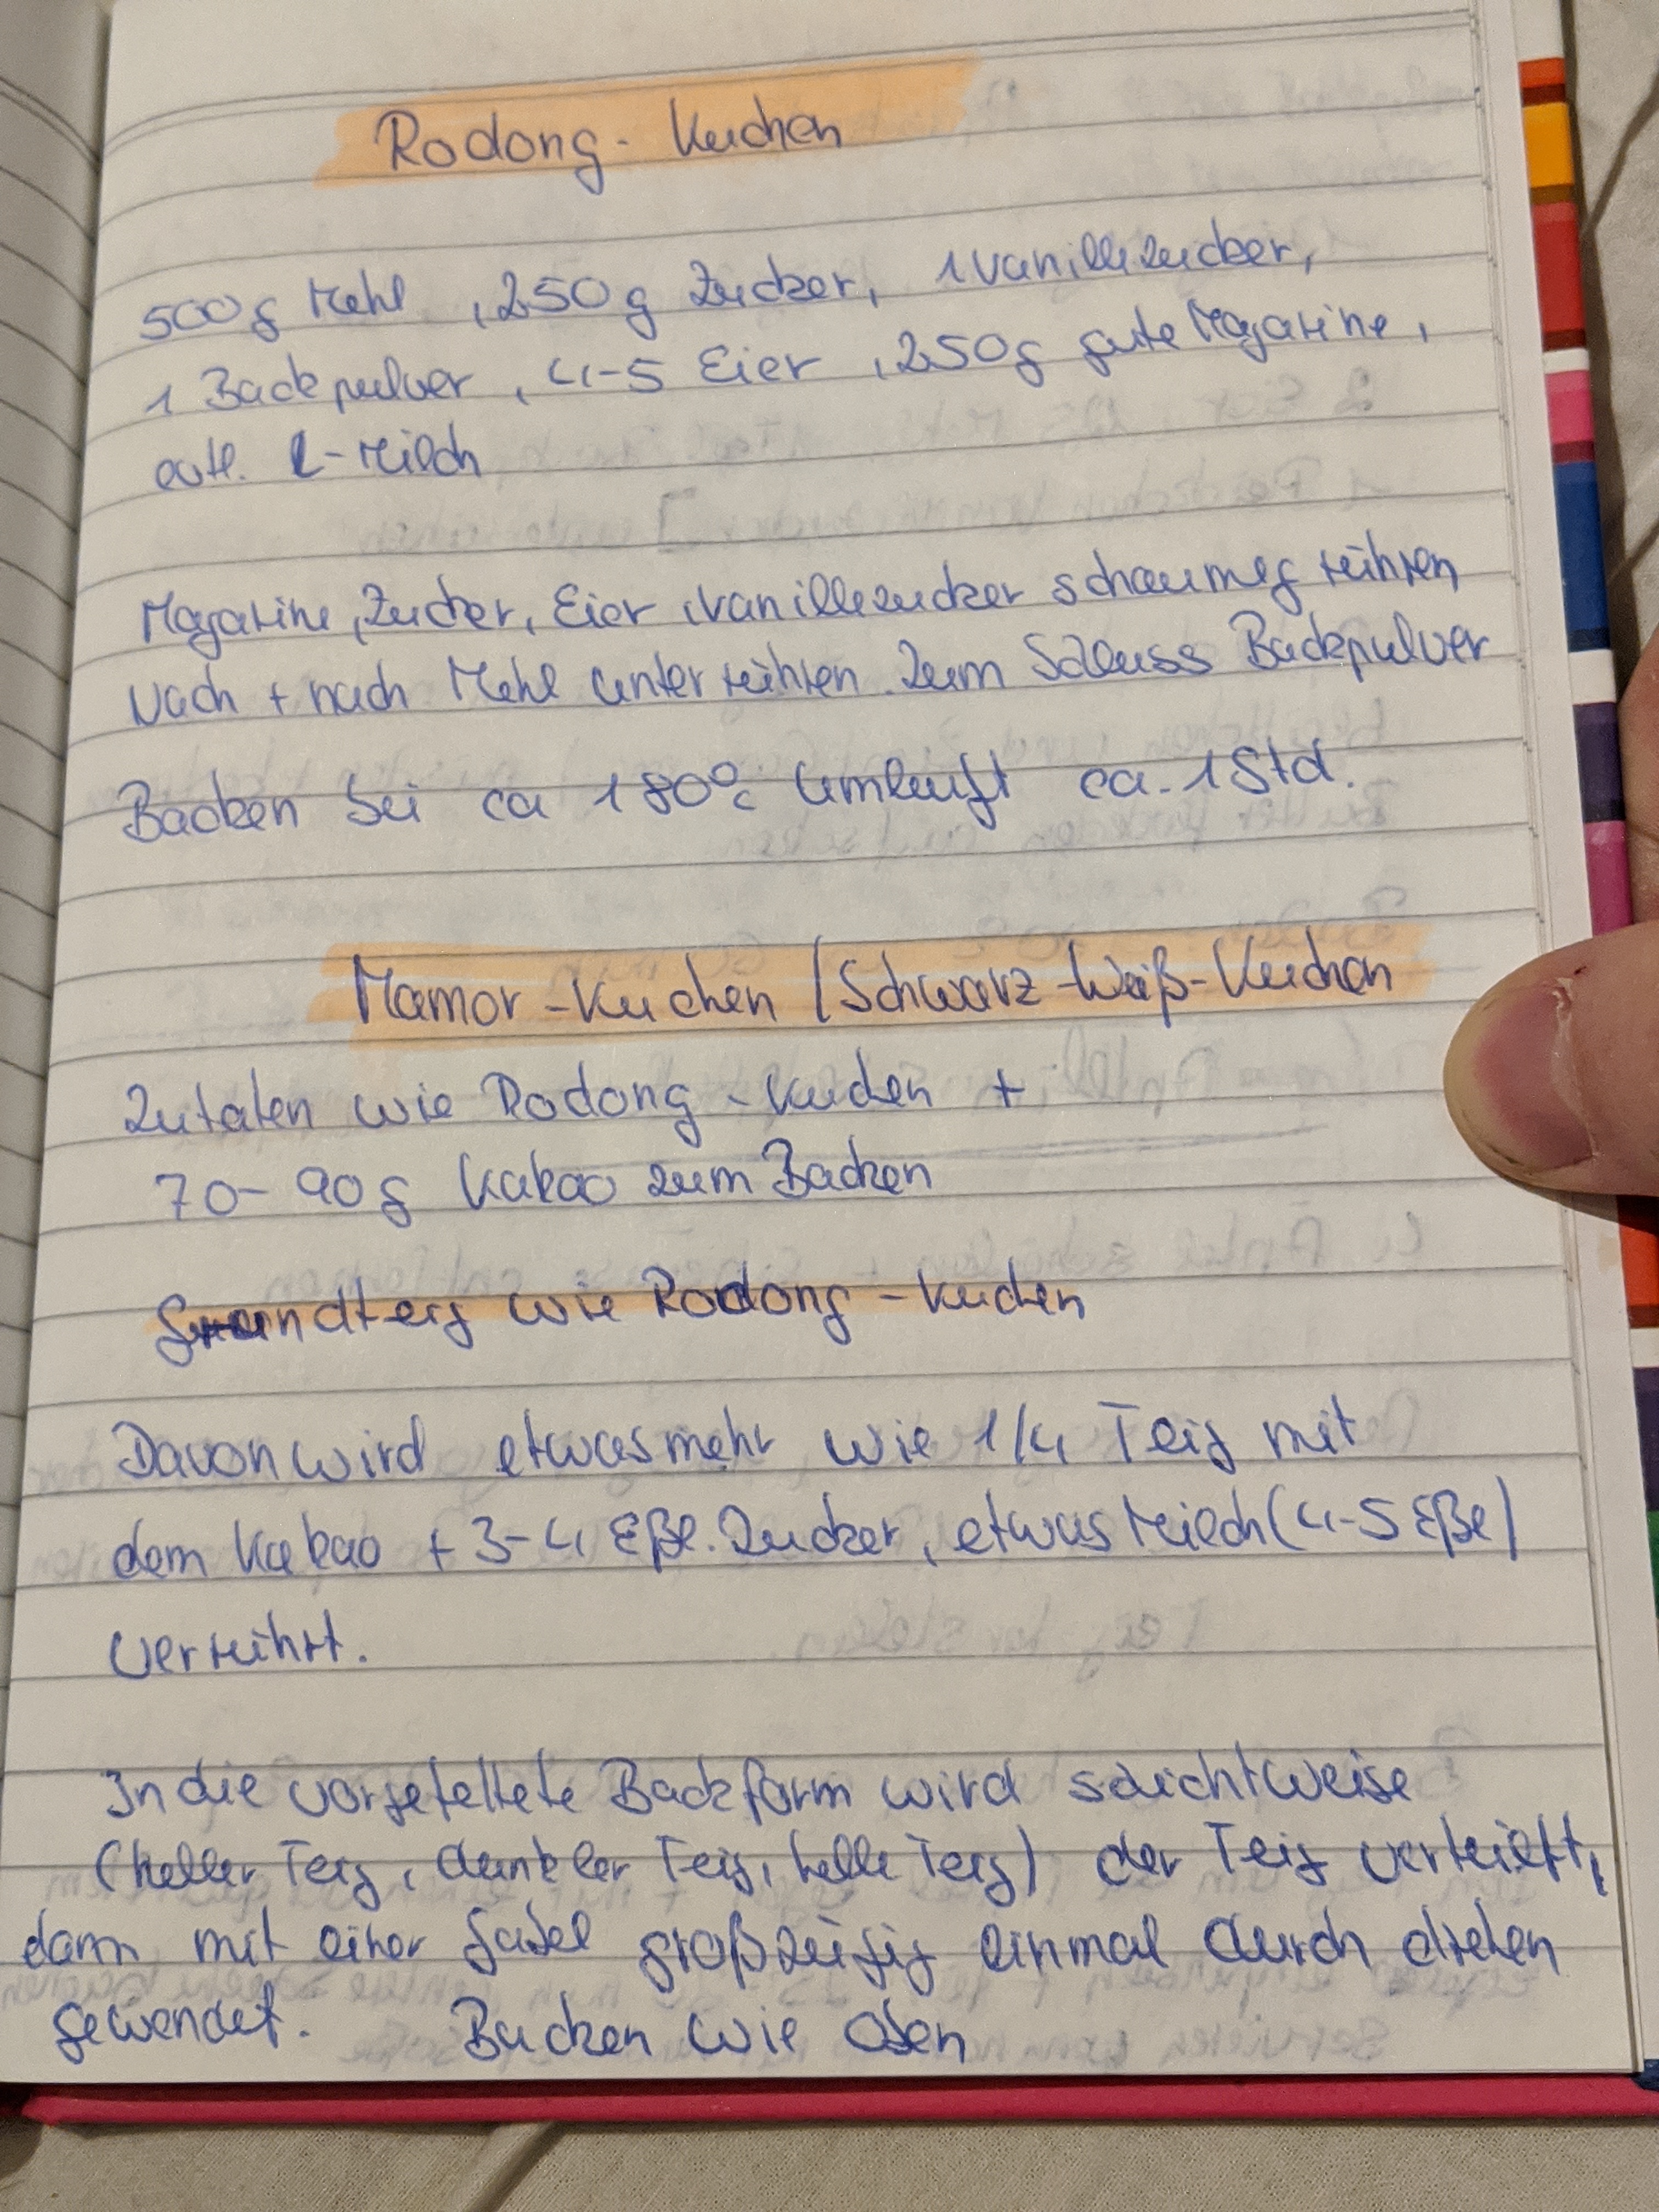 Rodong-Kuchen
500g Mehl, 250g Zucker, 1 Vanillezucker,
1 Backpulver, 4-5 Eier, 250g gute Magarine,
evtl. L-Milch
Magarine, Zucker, Eier, Vanillezucker schaumig rühren
Nach + nach Mehl unterrühren. Zum Schluss Backpulver
Backen bei ca 180°C Umluft ca. 1 Std.
Mamor-Kuchen / Schwarz-Weiß-Kuchen
Zutaten wie Rodong-Kuchen +
70-90g Kakao zum Backen
Grundteig wie Rodong-Kuchen
Davon wird etwas mehr wie 1/4 Teig mit
dem Kakao + 3-4 Eßl. Zucker, etwas Milch (4-5 Eßl)
verrührt.
In die vorgefettete Backform wird schichtweise
(heller Teig, dunkler Teig, helle Teig) der Teig verteilt,
dann mit einer Gabel großzügig einmal durch drehen
gewendet. Backen wie oben